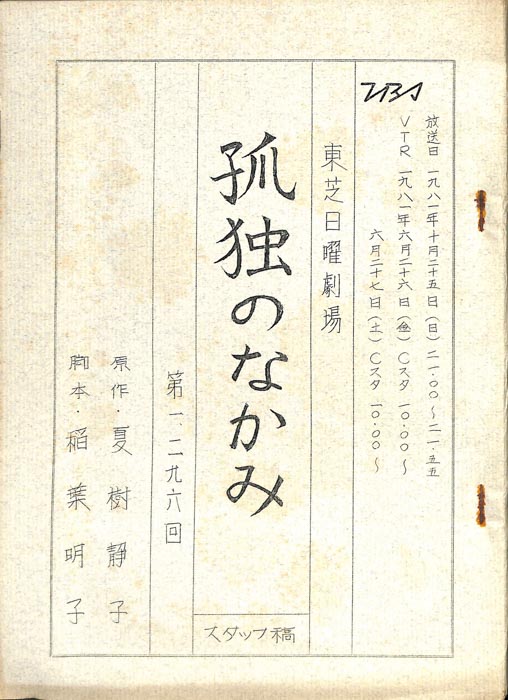 TBS
放送日 一九八一年十月二十五日(日)二一.〇〇〜二一.五五
VTR 一九八一年六月二十六日(金)Cスタ 一〇.〇〇〜
六月二十七日(土)Cスタ 一〇.〇〇〜
東芝日曜劇場
孤独のなかみ
スタッフ稿
第一、二九六回
原作・夏樹静子
脚本・稲葉明子